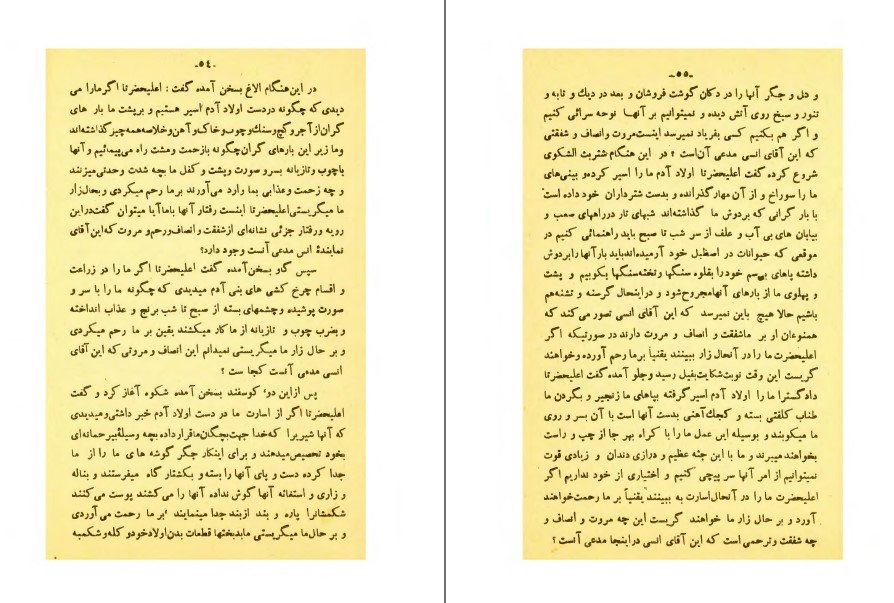 -٥٤-
در این هنگام الاغ بسخن آمده گفت : اعلیحضرتا اگر مارا می
دیدی که چگونه دردست اولاد آدم اسیر هستیم و برپشت ما بار های
گران از آجر و گچ و سنك و چوب و خاک و آهن و خلاصه همه چیز گذاشته‌اند
وما زیر این بارهای گران چگونه بازحمت ومشقت راه می‌پیمائیم و آنها
باچوب و تازیانه بسر و صورت و پشت و کفل ما بچه شدت وحدتی میزنند
و چه زحمت و عذابی بما وارد می‌آورند بر ما رحم میکردی و بحال زار
ما میگریستی اعلیحضرتا اینست رفتار آنها با ما آیا میتوان گفت در این
رویه و رفتار جزئی نشانه‌ای از شفقت و انصاف و رحم و مروت که این آقای
نمایندهٔ انس مدعی آنست وجود دارد؟
سپس گاو بسخن آمده گفت اعلیحضرتا اگر ما را در زراعت
و اقسام چرخ کشی های بنی آدم میدیدی که چگونه ما را با سر و
صورت پوشیده و چشمهای بسته از صبح تا شب برنج و عذاب انداخته
و بضرب چوب و تازیانه از ما کار میکشند یقین بر ما رحم میکردی
و بر حال زار ما میگریستی نمیدانم این انصاف و مروتی که این آقای
انسی مدعی آنست کجا ست ؟
پس ازاین دو گوسفند بسخن آمده شکوه آغاز کرد و گفت
اعلیحضرتا اگر از اسارت ما در دست اولاد آدم خبر داشتی ومیدیدی
که آنها شیریرا که خدا جهت بچگان ما قرار داده بچه وسیلهٔ بیرحمانه‌ای
بخود تخصیص میدهند و برای اینکار جگر گوشه های ما را از ما
جدا کرده دست و پای آنها را بسته و بکشتار گاه میفرستند و بناله
و زاری و استغاثه آنها گوش نداده آنها را می‌کشند پوست می‌کنند
شکمشانرا پاره و بند ازبند جدا مینمایند بر ما رحمت می‌آوردی
و بر حال ما میگریستی ما بدبختها قطعات بدن اولاد خود و کله و شکمبه
-٥٥-
و دل و جگر آنها را در دکان گوشت فروشان و بعد در دیك و تابه و
تنور و سیخ روی آتش دیده و نمیتوانیم بر آنهـا نوحه سرائی کنیم
و اگر هم بکنیم کسی بفریاد نمیرسد اینست مروت وانصاف و شفقتی
که این آقای انسی مدعی آن است ؟ در این هنگام شتر بث الشکوی
شروع کرده گفت اعلیحضرتا اولاد آدم ما را اسیر کرده و بینی‌های
ما را سوراخ و از آن مهار گذرانده و بدست شترداران خود داده است
با بار گرانی که بردوش ما گذاشته‌اند شبهای تار درراههای صعب و
بیابان های بی آب و علف از سر شب تا صبح باید راهنمائی کنیم در
موقعی که حیوانات در اصطبل خود آرمیده‌اند باید بار آنها را بردوش
داشته پاهای بی‌سم خود را بقلوه سنگها وتخته سنگها بکوبیم و پشت
و پهلوی ما از بارهای آنها مجروح شود و دراینحال گرسنه و تشنه هم
باشیم حالا هیچ باین نمیرسد که این آقای انسی تصور می‌کند که
همنوعان او بر ما شفقت و انصاف و مروت دارند در صورتیکه اگر
اعلیحضرت ما را در آنحال زار ببینند یقیناً بر ما رحم آورده و خواهند
گریست این وقت نوبت شکایت بفیل رسید وجلو آمده گفت اعلیحضرتا
دادگسترا ما را اولاد آدم اسیر گرفته بپاهای ما زنجیر و بگردن ما
طناب کلفتی بسته و کجك آهنی بدست آنها است با آن بسر و روی
ما میکوبند و بوسیله این عمل ما را با کراه بهر جا از چپ و راست
بخواهند میبرند و ما با این جثه عظیم و درازی دندان و زیادی قوت
نمیتوانیم از امر آنها سر پیچی کنیم و اختیاری از خود نداریم اگر
اعلیحضرت ما را در آنحال اسارت به ببینند یقیناً بر ما رحمت خواهند
آورد و بر حال زار ما خواهند گریست این چه مروت و انصاف و
چه شفقت وترحمی است که این آقای انسی دراینجا مدعی آنست ؟